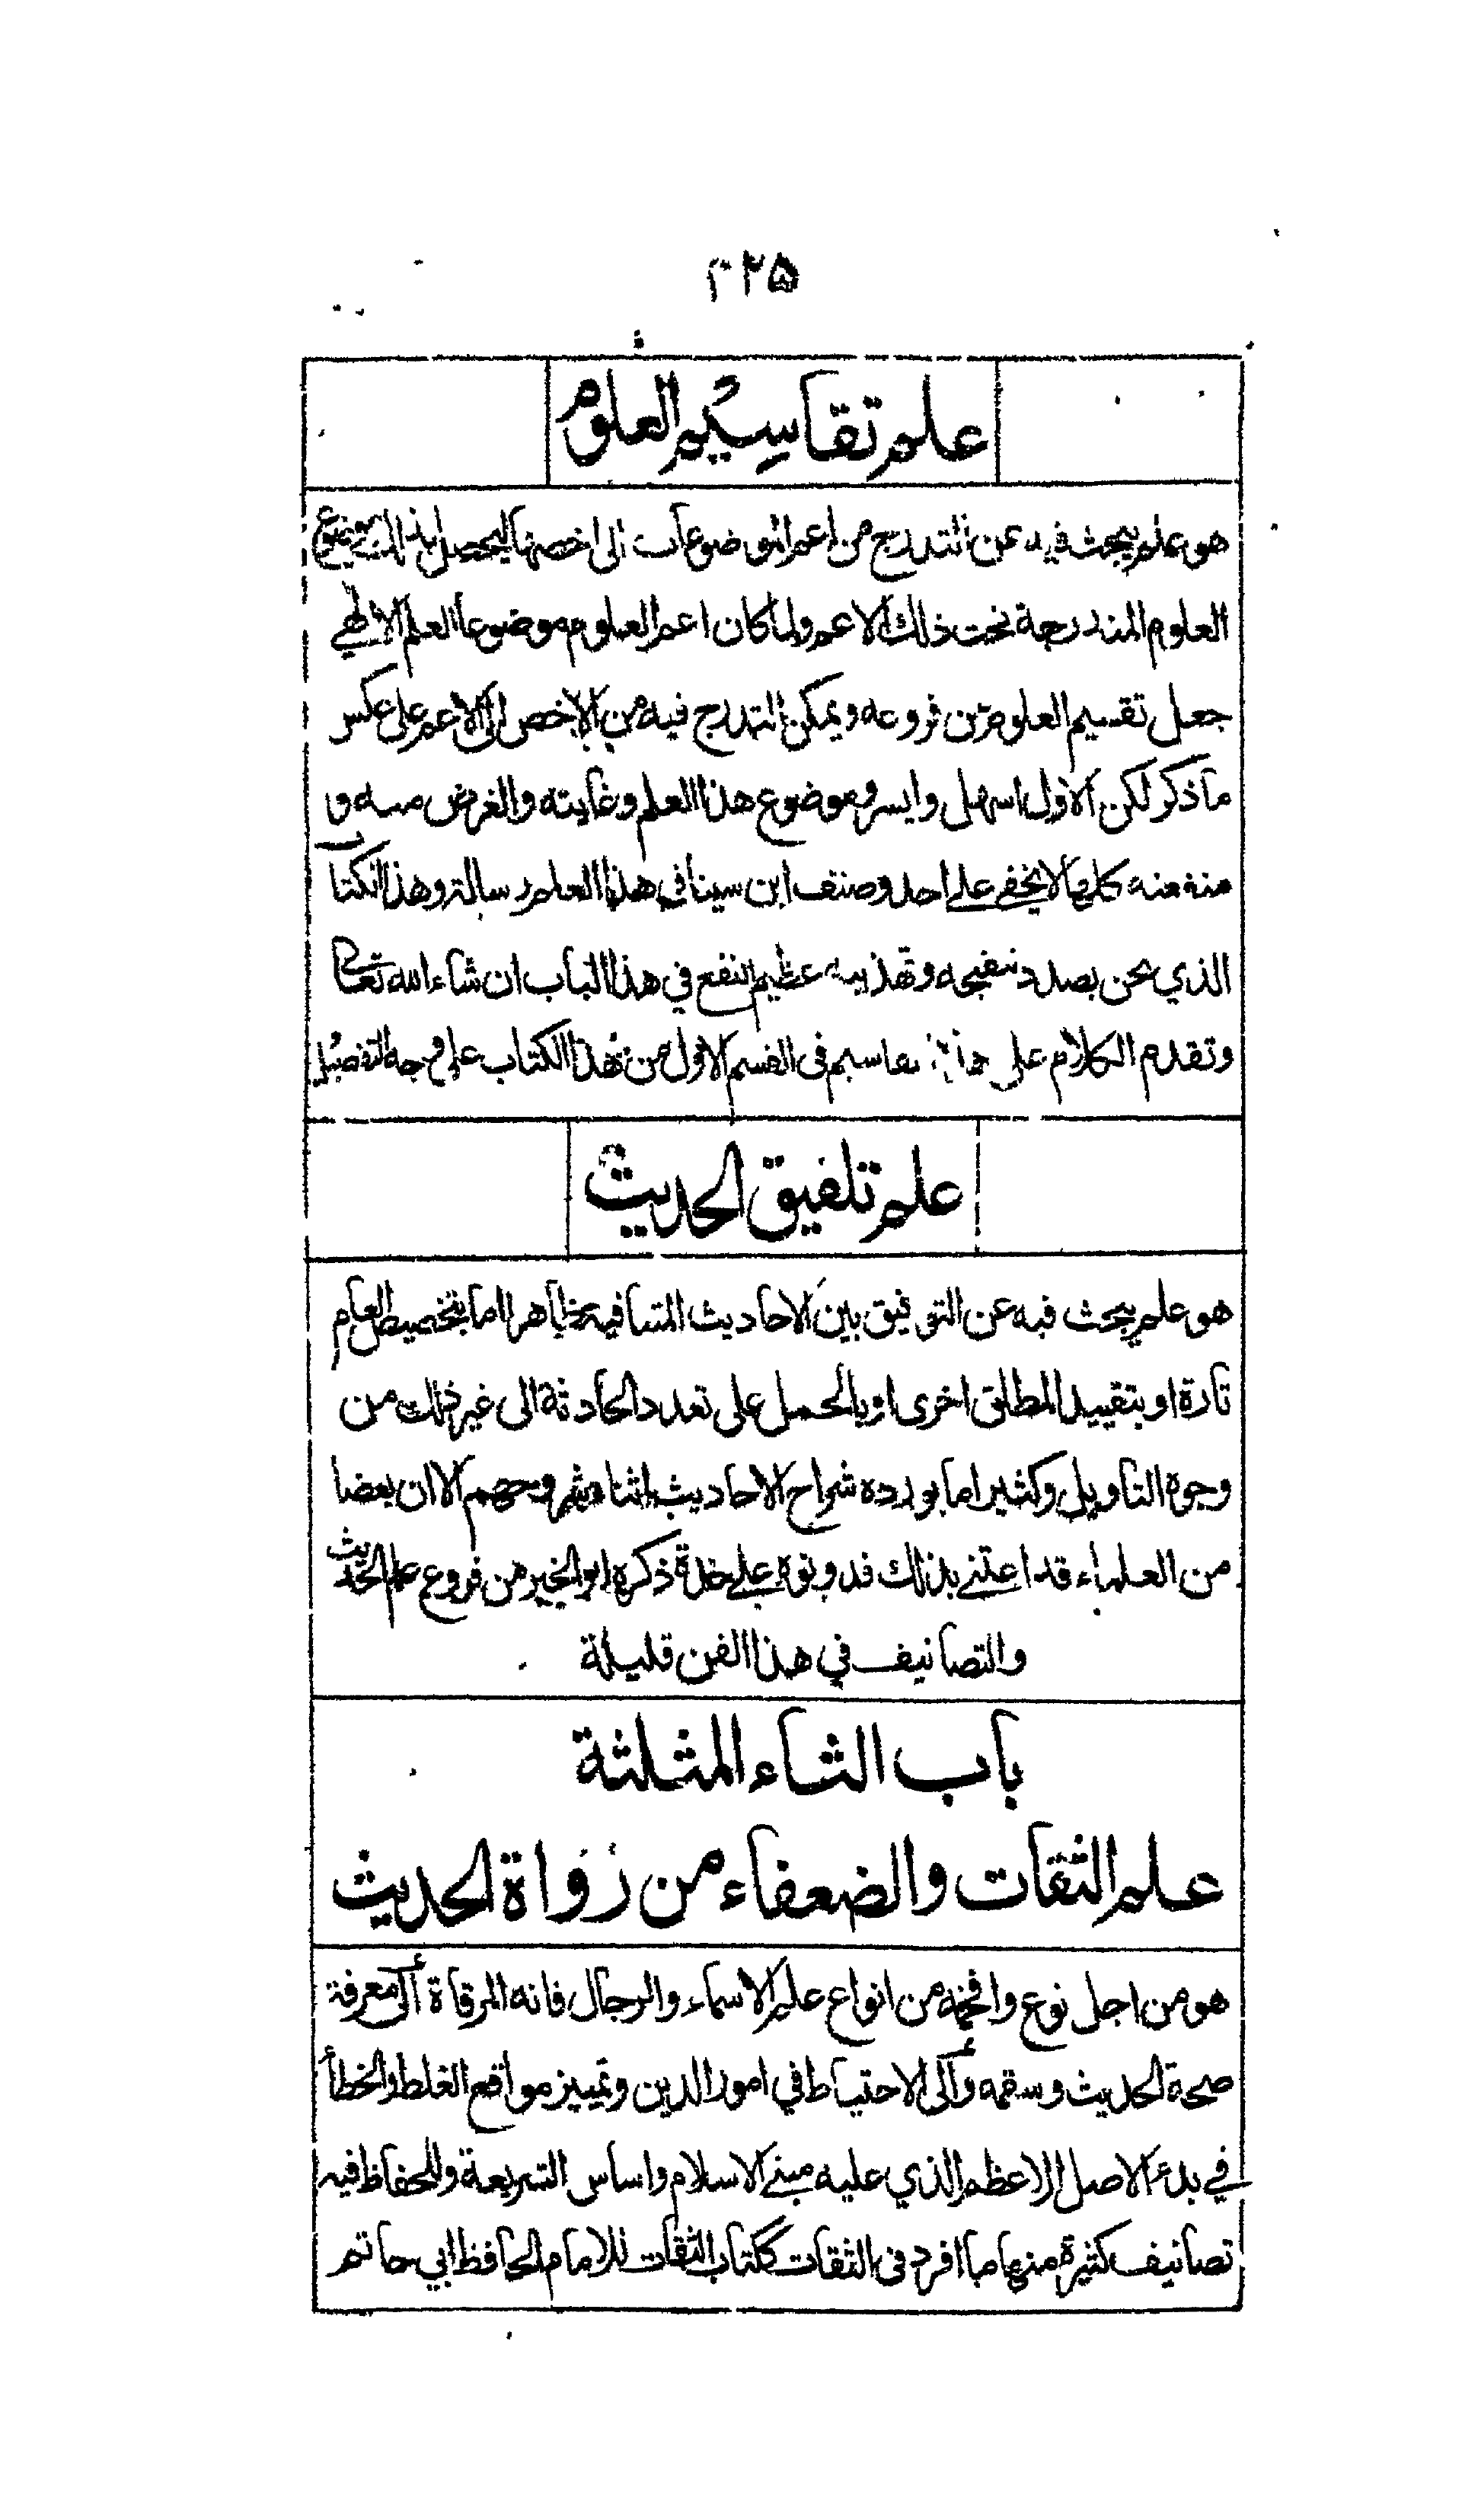 علم تقاسيم العلوم
هو علم يبحث فيه عن التدرج من اعم الموضوعات الى اخصها ليحصل بذلك موضوع
العلوم المندرجة تحت ذلك الاعم ولما كان اعم العلوم موضوعا العلم الالهي
جعل تقسيم العلوم من فروعه ويمكن التدرج فيه من الاخص الى الاعم على عكس
ما ذكر لكن الاول اسهل وايسر وموضوع هذا العلم وغايته والغرض منه و
منفعته كلها لا يخفى على احد وصنف ابن سينا في هذا العلم رسالة وهذا الكتاب
الذي نحن بصدد تنقيحه وتهذيبه عظيم النفع في هذا الباب ان شاء الله تعالى
وتقدم الكلام على في القسم الاول من هذا الكتاب على وجه التفصيل
علم تلفيق الحديث
هو علم يبحث فيه عن التوفيق بين الاحاديث المتنافية ظاهرا اما بتخصيص العام
تارة او بتقييد المطلق اخرى او بالحمل على تعدد الحادثة الى غير ذلك من
وجوه التاويل وكثيرا ما يورده شراح الاحاديث اثناء شروحهم الا ان بعضا
من العلماء قد اعتنى بذلك فدونوه على حدة ذكره ابو الخير من فروع علم الحديث
والتصانيف في هذا الفن قليلة
باب الثاء المثلثة
علم الثقات والضعفاء من رواة الحديث
هو من اجل نوع وافخمه من انواع علم الاسماء والرجال فانه المرقاة الى معرفة
صحة الحديث وسقمه والى الاحتياط في امور الدين وتمييز مواقع الغلط والخطأ
في بدء الاصل الاعظم الذي عليه مبنى الاسلام واساس الشريعة وللحفاظ فيه
تصانيف كثيرة منها ما افرد في الثقات ككتاب الثقات للامام الحافظ ابي حاتم